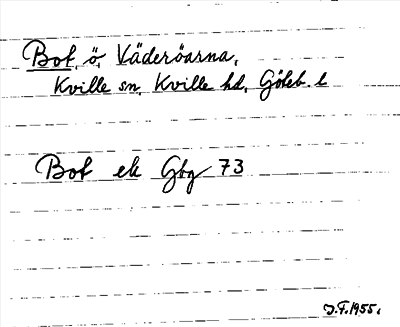 Bot, ö, Väderöarna,
Kville sn, Kville hd, Göteb. l
Bot ek Gbg 73
J.F. 1955.